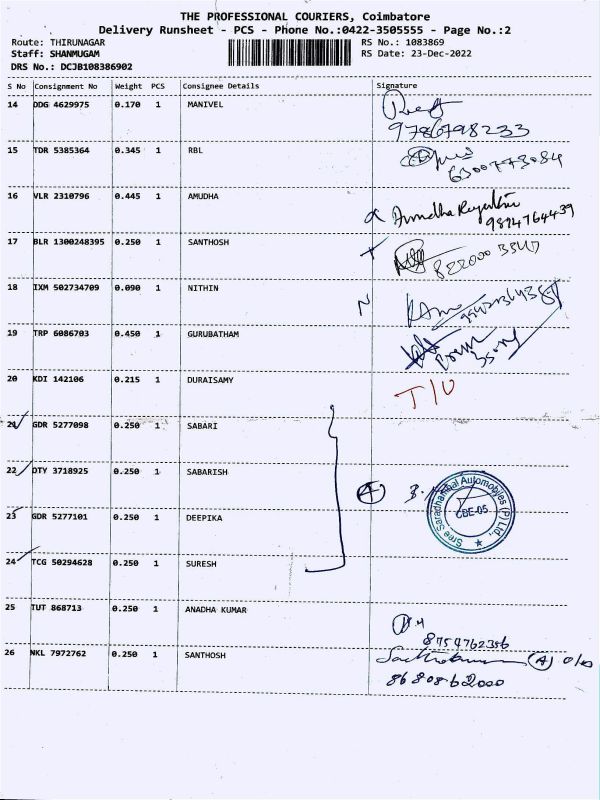 THE PROFESSIONAL COURIERS, Coimbatore
Delivery Runsheet - PCS - Phone No.:0422-3505555 - Page No.:2
Route: THIRUNAGAR
RS No.: 1083869
Staff: SHANMUGAM
RS Date: 23-Dec-2022
DRS No.: DCJB108386902
S No Consignment No Weight PCS Consignee Details Signature
14 DDG 4629975 0.170 1 MANIVEL
9786798233
15 TDR 5385364 0.345 1 RBL
6300773084
16 VLR 2310796 0.445 1 AMUDHA
9894764439
17 BLR 1300248395 0.250 1 SANTHOSH
18 IXM 502734709 0.090 1 NITHIN
N
19 TRP 6086703 0.450 1 GURUBATHAM
20 KDI 142106 0.215 1 DURAISAMY
21 GDR 5277098 0.250 1 SABARI
22 DTY 3718925 0.250 1 SABARISH
Sree Saradhambal Automobiles (P) Ltd.,
CBE-05
23 GDR 5277101 0.250 1 DEEPIKA
24 TCG 50294628 0.250 1 SURESH
25 TUT 868713 0.250 1 ANADHA KUMAR
8754762356
26 NKL 7972762 0.250 1 SANTHOSH
8680862000